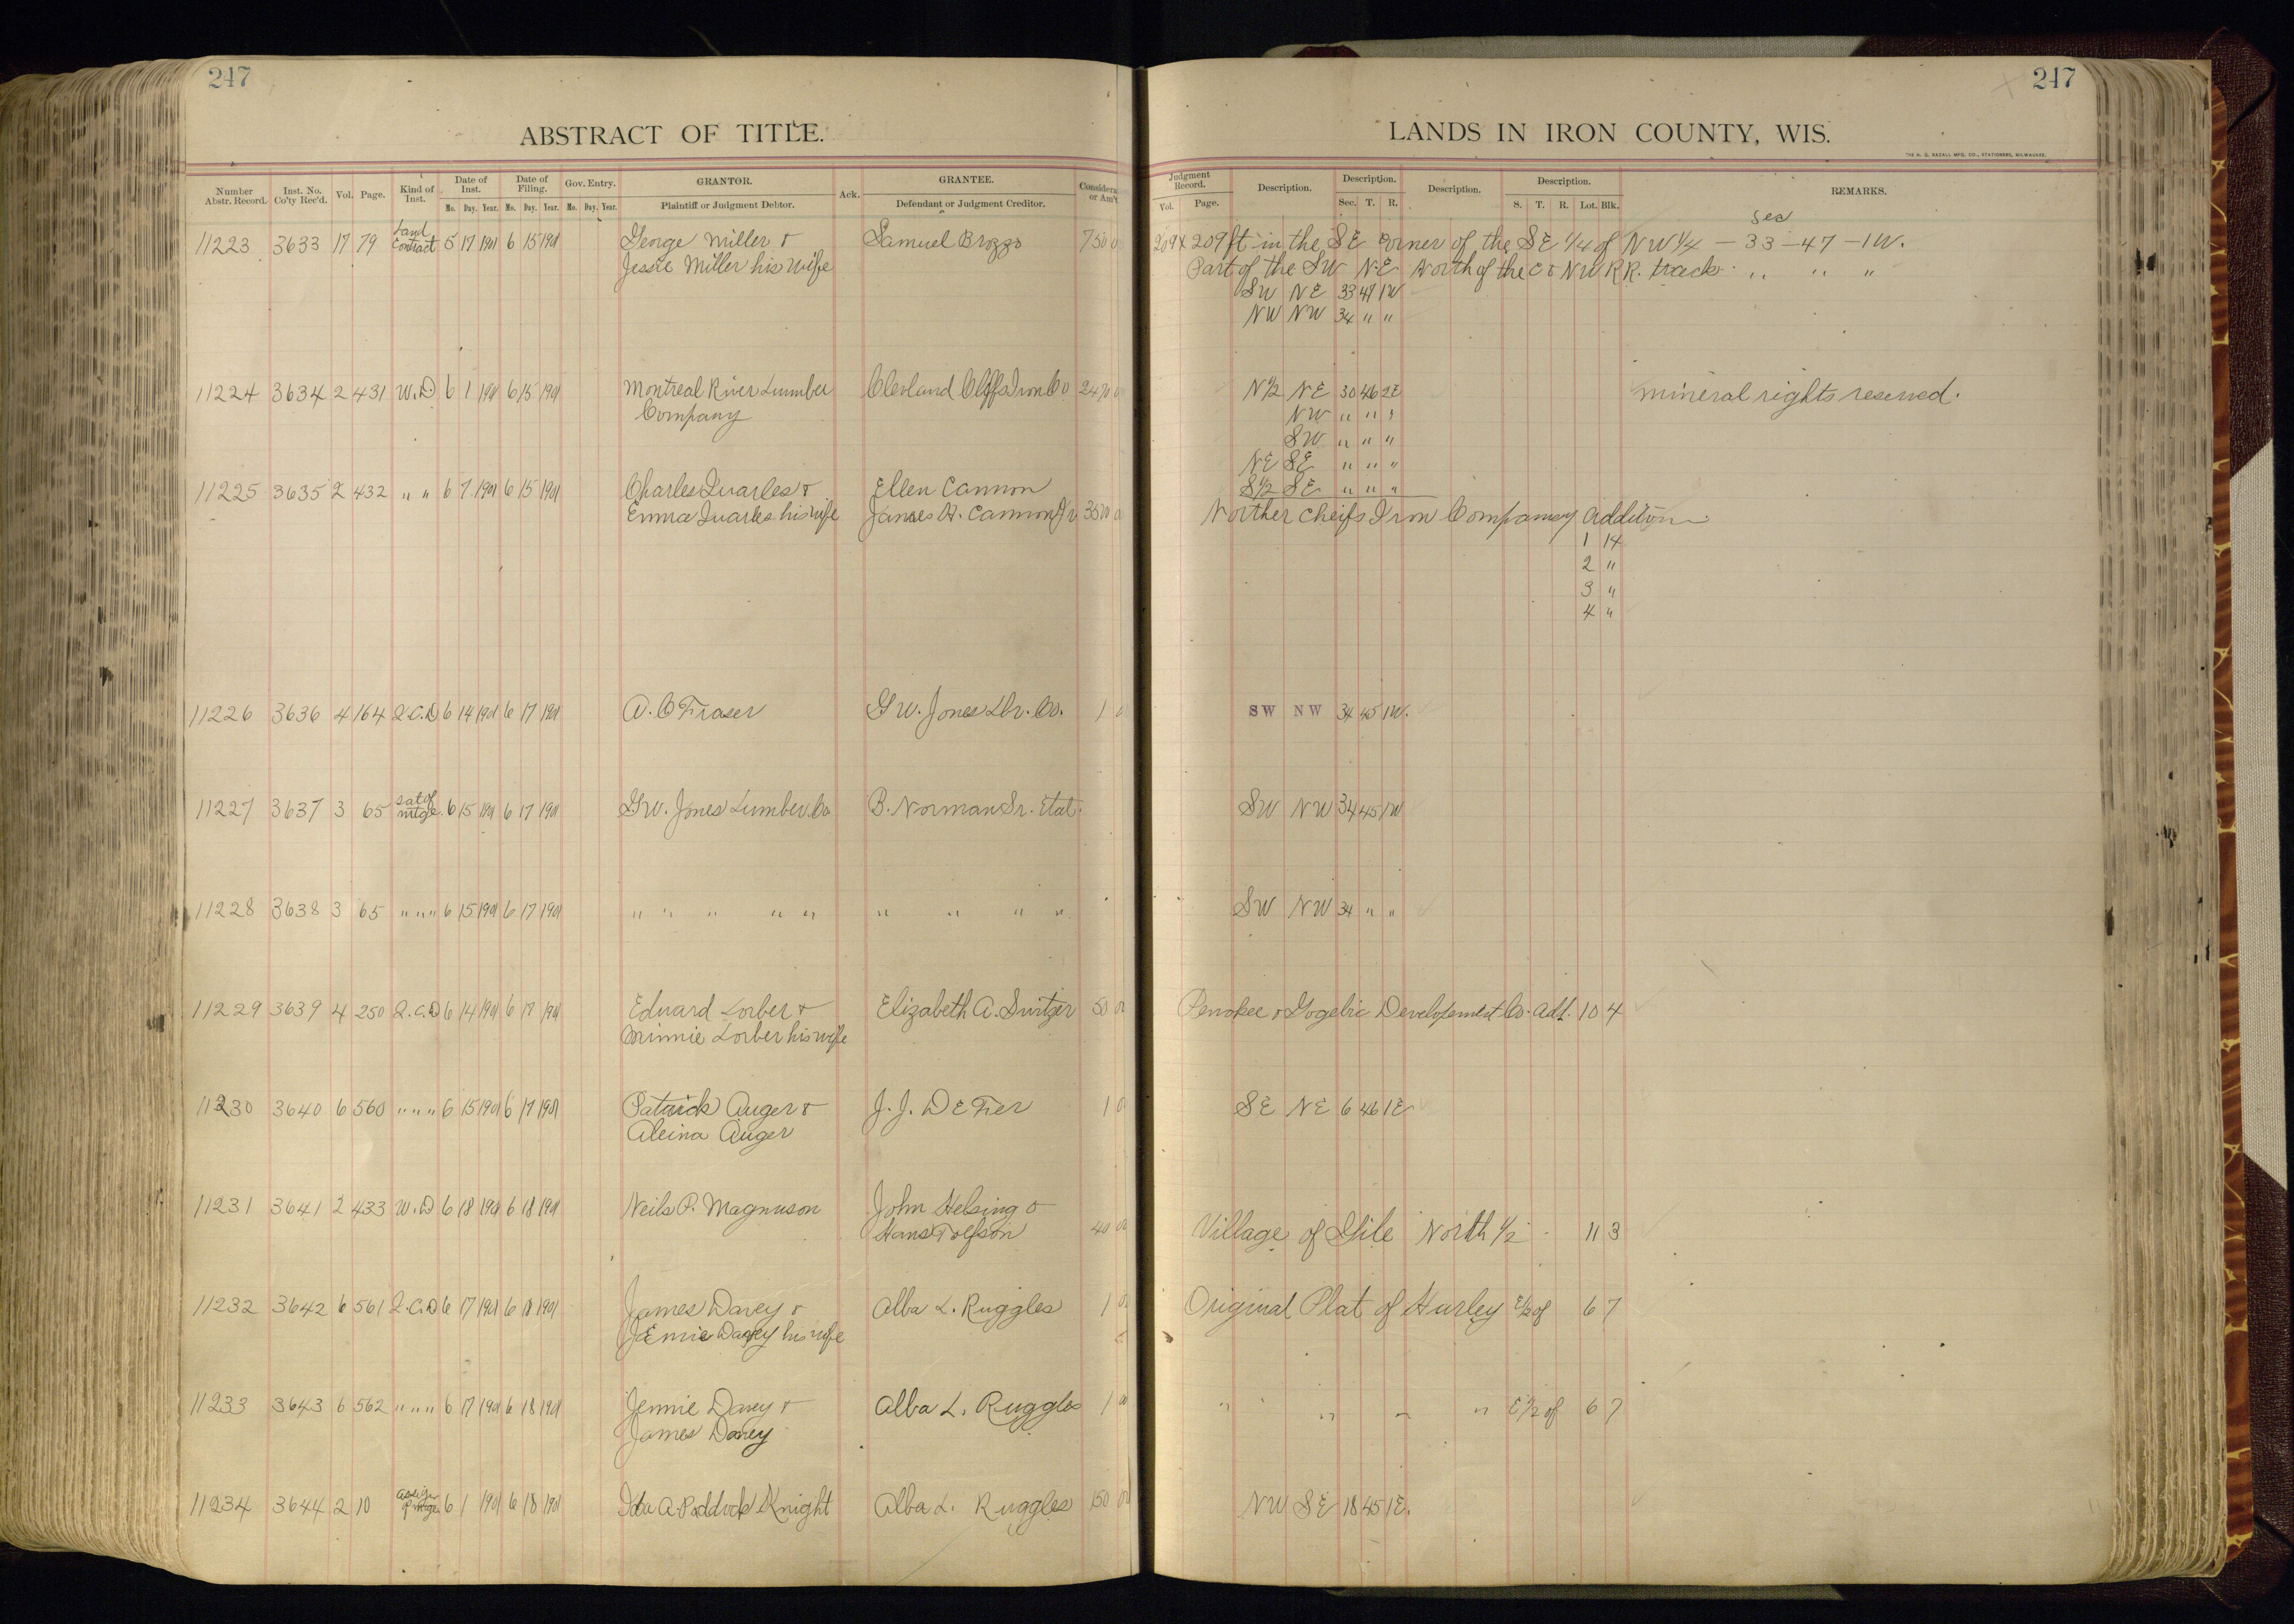 247
ABSTRACT OF TITLE.
Number Abstr. Record. Inst. No. Co'ty Rec'd. Vol. Page. Kind of Inst. Date of Inst. Mo. Day. Year. Date of Filing. Mo. Day. Year. Gov. Entry. Mo. Day. Year. GRANTOR. Plaintiff or Judgment Debtor. Ack. GRANTEE. Defendant or Judgment Creditor. Considera or Am't
11223 3633 17 79 Land Contract 5 17 1901 6 15 1901 George Miller & Samuel Brozzo 750 0
Jessie Miller his wife
11224 3634 2 431 W.D 6 1 1901 6 15 1901 Montreal River Lumber Clevland Cliffs Iron Co 2470 0
Company
11225 3635 2 432 " " 6 7 1901 6 15 1901 Charles Quarles & Ellen Cannon
Emma Quarles his wife James H. Cannon Jr 3500 0
11226 3636 4 164 Q.C.D 6 14 1901 6 17 1901 A. C Fraser G W. Jones Lbr. Co. 1 0
11227 3637 3 65 sat of mtge. 6 15 1901 6 17 1901 G W. Jones Lumber Co B. Norman Sr. Etal.
11228 3638 3 65 " " " 6 15 1901 6 17 1901 " " " " " " " " "
11229 3639 4 250 Q.C.D 6 14 1901 6 17 1901 Edward Lorber & Elizabeth A. Switzer 50 00
Minnie Lorber his wife
11230 3640 6 560 " " " 6 15 1901 6 17 1901 Patrick Auger & J. J. DEFer 1 0
Aleina Auger
11231 3641 2 433 W.D 6 18 1901 6 18 1901 Neils P. Magnuson John Helsing &
Hans Tolfson 40 00
11232 3642 6 561 Q.C.D 6 17 1901 6 18 1901 James Davey & Alba L. Ruggles 1 0
JEnnie Davey his wife
11233 3643 6 562 " " " 6 17 1901 6 18 1901 Jennie Davey & Alba L. Ruggles 1 00
James Davey
11234 3644 2 10 Assign of mtge 6 1 1901 6 18 1901 Ida A. Paddock Knight Alba L. Ruggles 150 00
247
LANDS IN IRON COUNTY, WIS.
THE H. G. RAZALL MFG. CO., STATIONERS, MILWAUKEE.
Judgment Record. Vol. Page. Description. Description. Sec. T. R. Description. Description. S. T. R. Lot. Blk. REMARKS.
Sec
209 X 209 ft in the SE Corner of the SE 1/4 of NW 1/4 — 33 — 47 — 1 W.
Part of the SW NE North of the C & NW RR. track " " "
SW NE 33 47 1W
NW NW 34 " "
N 1/2 NE 30 46 2E mineral rights reserved.
NW " " "
SW " " "
NE SE " " "
S 1/2 SE " " "
Norther Cheifs Iron Compamy Addition
1 14
2 "
3 "
4 "
SW NW 34 45 1W.
SW NW 34 45 1W
SW NW 34 " "
Penokee & Gogebic Developement Co. Add. 10 4
SE NE 6 46 1E
Village of Gile North 1/2 11 3
Original Plat of Hurley E 1/2 of 6 7
" " " " " E 1/2 of 6 7
NW SE 18 45 1E.